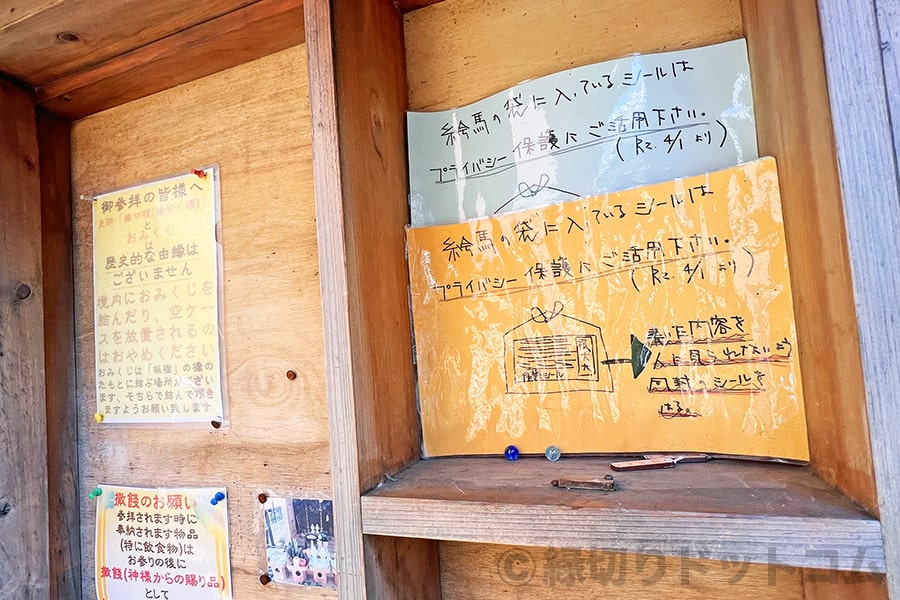 御参拝の皆様へ
史跡「縁切榎(縁切り榎)」
と
おみくじ
は
歴史的な由縁は
ございません
境内におみくじを
結んだり、空ケー
スを放置されるの
はおやめください
おみくじは「板橋」の橋の
たもとに結ぶ場所がござい
ます、そちらで結んで頂き
ますようお願い致します
撤饌のお願い
参拝されます時に
奉納されます物品
(特に飲食物)は
お参りの後に
撤饌(神様からの賜り品)
として
絵馬の袋に入っているシールは
プライバシー保護にご活用下さい。
(R2. 4/1 より)
絵馬の袋に入っているシールは
プライバシー保護にご活用下さい。
(R2. 4/1 より)
保護シール
書いた内容を
人に見られないよう
同封のシールを
はる。
©縁切りドットコム